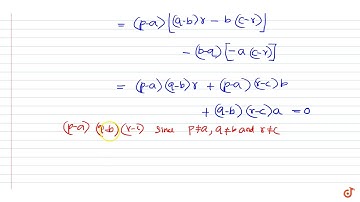 = (p-a) [(q-b)r - b(c-r)]
- (b-q) [-a(c-r)]
= (p-a)(q-b)r + (p-a)(r-c)b
+ (q-b)(r-c)a = 0
(p-a) (q-b)(r-c) since p≠a, q≠b and r≠c
doubtnut